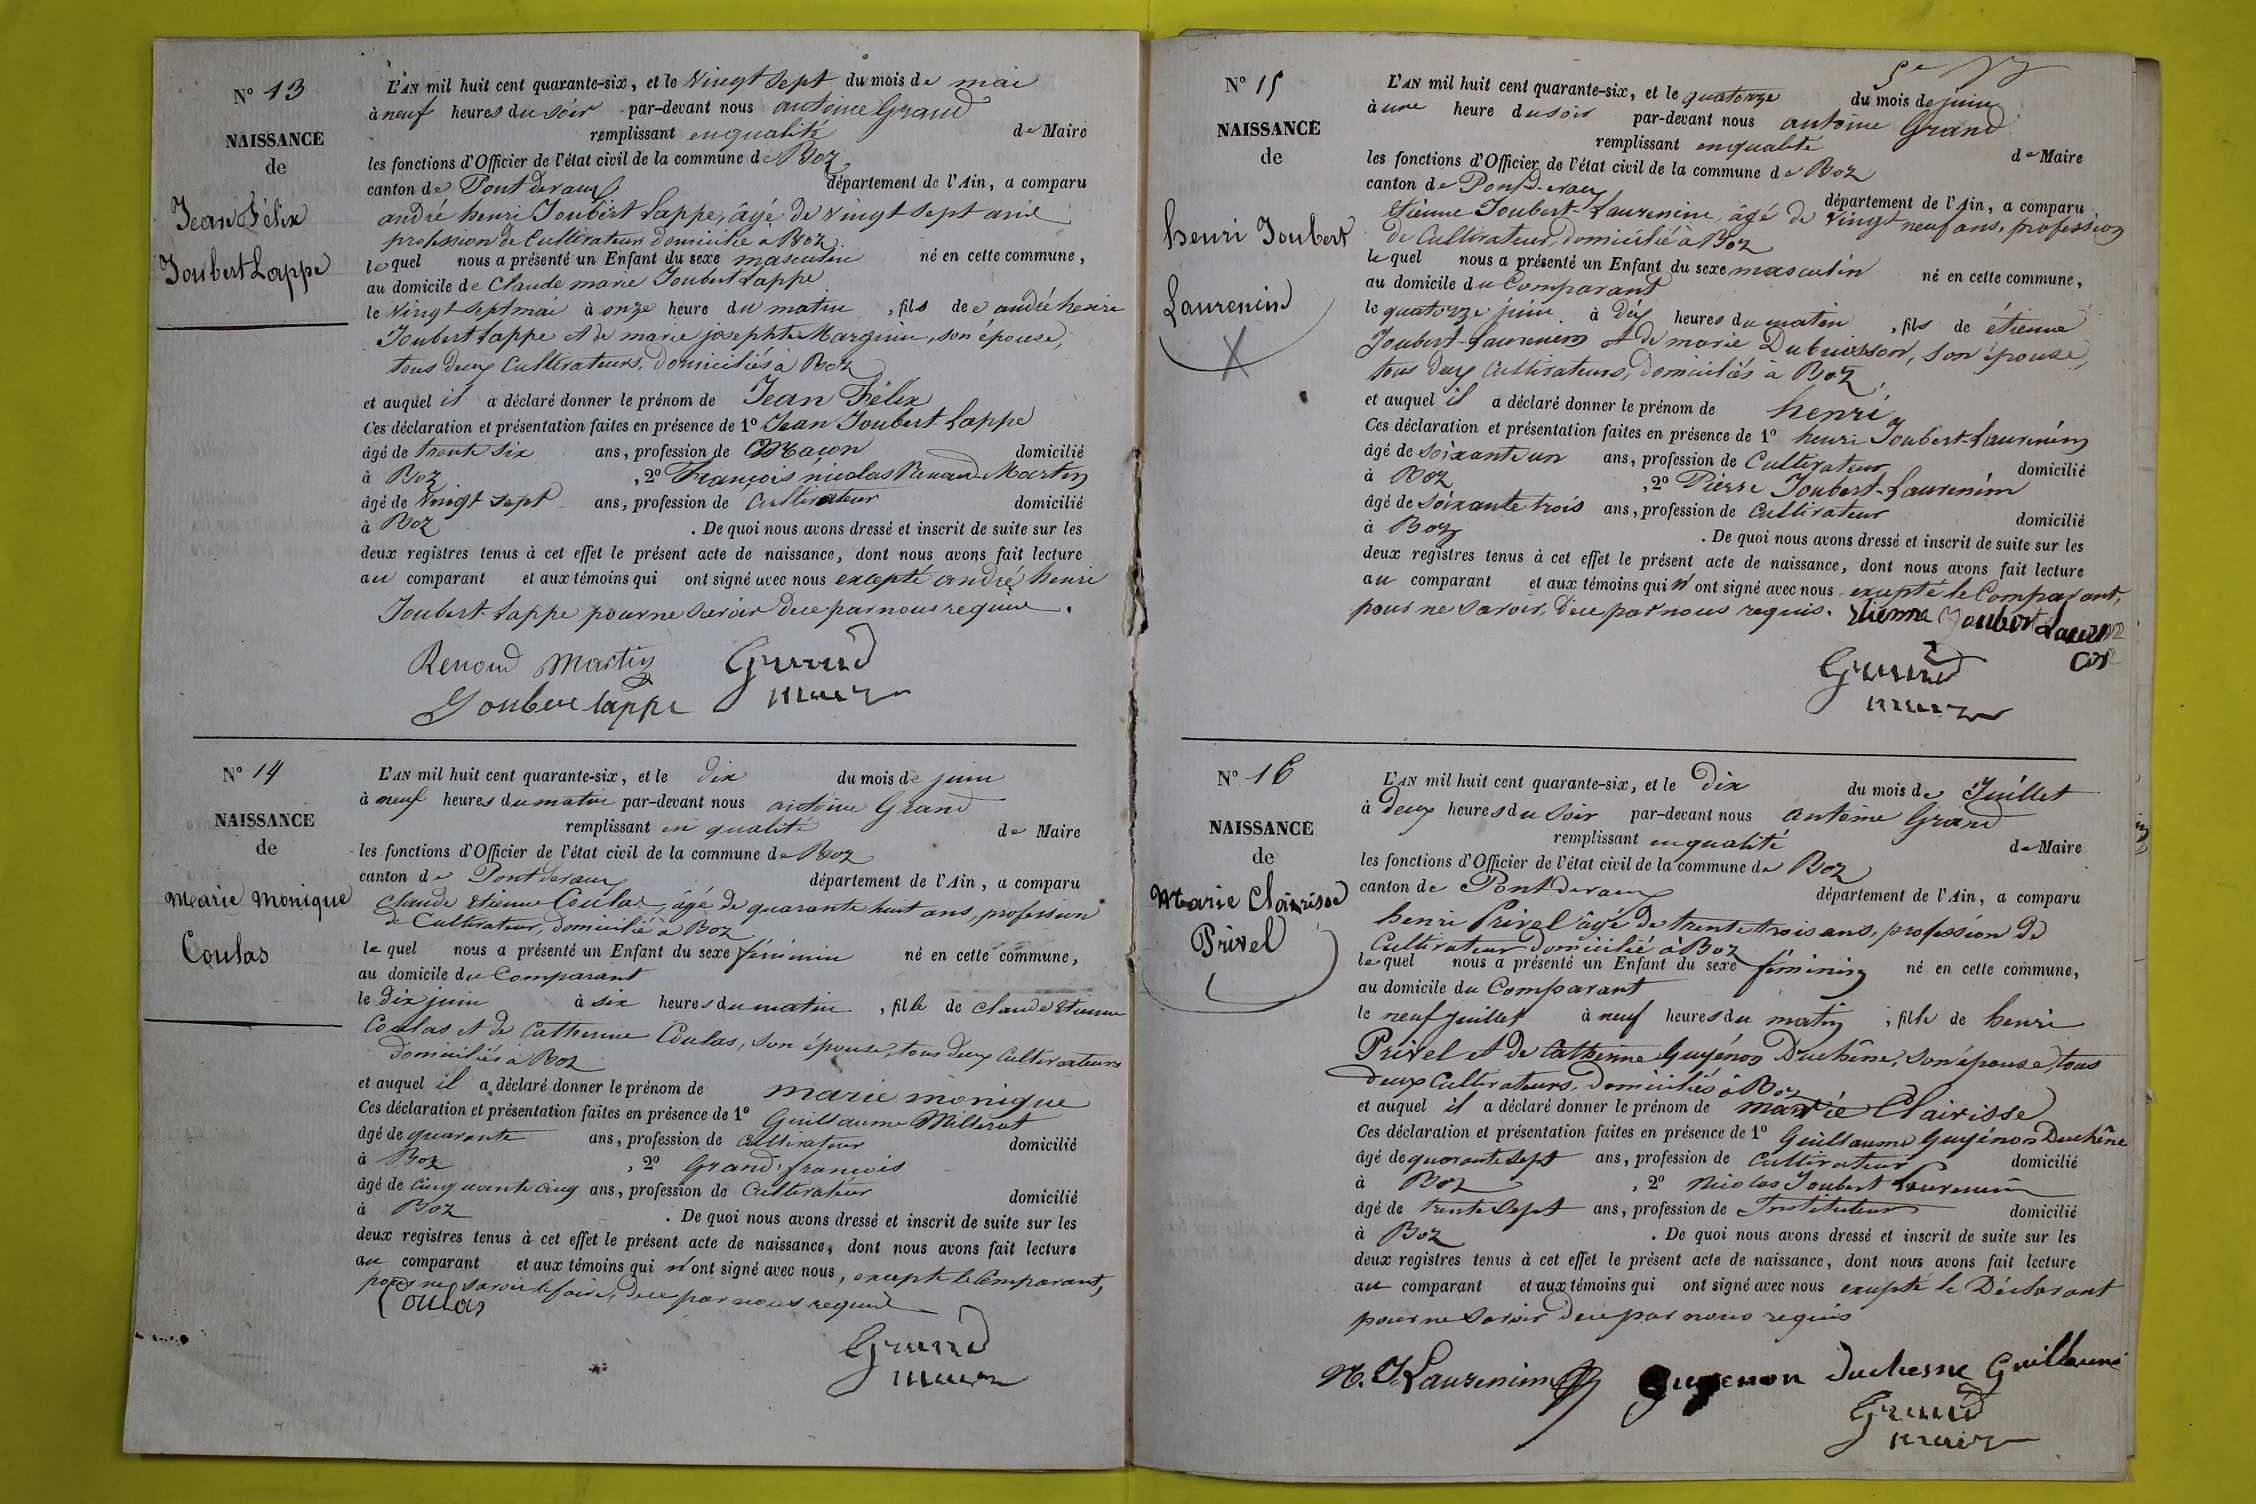 N° 13
NAISSANCE
de
Jean Félix
Joubert Lappe
L'AN mil huit cent quarante-six, et le Vingt sept du mois de mai
à neuf heures du soir par-devant nous antoine Grand
remplissant en qualité de Maire
les fonctions d'Officier de l'état civil de la commune de Boz
canton de Pont devaux département de l'Ain, a comparu
andré henri Joubert Lappe, âgé de vingt sept ans
profession de Cultivateur domicilié à Boz
lequel nous a présenté un Enfant du sexe masculin né en cette commune,
au domicile de Claude marie Joubert Lappe
le Vingt sept mai à onze heure du matin, fils de andré henri
Joubert Lappe et de marie josephte Marguin, son épouse,
tous deux Cultivateurs, domiciliés à Boz
et auquel il a déclaré donner le prénom de Jean Félix
Ces déclaration et présentation faites en présence de 1° Jean Joubert Lappe
âgé de trente six ans, profession de Maçon domicilié
à Boz, 2° François nicolas Renoud Martin
âgé de vingt sept ans, profession de Cultivateur domicilié
à Boz. De quoi nous avons dressé et inscrit de suite sur les
deux registres tenus à cet effet le présent acte de naissance, dont nous avons fait lecture
au comparant et aux témoins qui ont signé avec nous excepté andré henri
Joubert Lappe pour ne savoir de ce par nous requis.
Renoud Martin Grand
Joubert lappe maire
N° 14
NAISSANCE
de
Marie Monique
Coulas
L'AN mil huit cent quarante-six, et le dix du mois de juin
à neuf heures du matin par-devant nous antoine Grand
remplissant en qualité de Maire
les fonctions d'Officier de l'état civil de la commune de Boz
canton de Pont devaux département de l'Ain, a comparu
Claude Etienne Coulas, âgé de quarante huit ans, profession
de Cultivateur, domicilié à Boz
lequel nous a présenté un Enfant du sexe féminin né en cette commune,
au domicile du Comparant
le dix juin à six heures du matin, fille de Claude Etienne
Coulas et de Catherine Coulas, son épouse, tous deux Cultivateurs
domiciliés à Boz
et auquel il a déclaré donner le prénom de marie monique
Ces déclaration et présentation faites en présence de 1° Guillaume Millerat
âgé de quarante ans, profession de Cultivateur domicilié
à Boz, 2° Grand françois
âgé de cinquante cinq ans, profession de Cultivateur domicilié
à Boz. De quoi nous avons dressé et inscrit de suite sur les
deux registres tenus à cet effet le présent acte de naissance, dont nous avons fait lecture
au comparant et aux témoins qui n'ont signé avec nous, excepté le Comparant,
pour ne savoir le faire, de ce par nous requis
Coulas
Grand
maire
N° 15
NAISSANCE
de
henri Joubert
Laurencin
L'AN mil huit cent quarante-six, et le quatorze du mois de juin
à une heure du soir par-devant nous antoine Grand
remplissant en qualité de Maire
les fonctions d'Officier de l'état civil de la commune de Boz
canton de Pont-devaux département de l'Ain, a comparu
Etienne Joubert-Laurencin, âgé de vingt neuf ans, profession
de Cultivateur, domicilié à Boz
lequel nous a présenté un Enfant du sexe masculin né en cette commune,
au domicile du Comparant
le quatorze juin à dix heures du matin, fils de étienne
Joubert-Laurencin et de marie Dubuisson, son épouse,
tous deux Cultivateurs, domiciliés à Boz,
et auquel il a déclaré donner le prénom de henri
Ces déclaration et présentation faites en présence de 1° henri Joubert-Laurencin
âgé de soixante un ans, profession de Cultivateur domicilié
à Boz, 2° Pierre Joubert-Laurencin
âgé de soixante trois ans, profession de Cultivateur domicilié
à Boz. De quoi nous avons dressé et inscrit de suite sur les
deux registres tenus à cet effet le présent acte de naissance, dont nous avons fait lecture
au comparant et aux témoins qui n'ont signé avec nous, excepté le Comparant,
pour ne savoir, de ce par nous requis. Etienne Joubert
Grand
maire
N° 16
NAISSANCE
de
Marie Clairisse
Privel
L'AN mil huit cent quarante-six, et le dix du mois de Juillet
à deux heures du soir par-devant nous antoine Grand
remplissant en qualité de Maire
les fonctions d'Officier de l'état civil de la commune de Boz
canton de Pont devaux département de l'Ain, a comparu
henri Privel âgé de trente trois ans, profession de
Cultivateur domicilié à Boz
lequel nous a présenté un Enfant du sexe féminin né en cette commune,
au domicile du Comparant
le neuf juillet à neuf heures du matin, fille de henri
Privel et de Catherine Guyénon Duchêne, son épouse, tous
deux Cultivateurs, domiciliés à Boz
et auquel il a déclaré donner le prénom de marie Clairisse
Ces déclaration et présentation faites en présence de 1° Guillaume Guyénon Duchêne
âgé de quarante sept ans, profession de Cultivateur domicilié
à Boz, 2° nicolas Joubert Laurencin
âgé de trente sept ans, profession de Instituteur domicilié
à Boz. De quoi nous avons dressé et inscrit de suite sur les
deux registres tenus à cet effet le présent acte de naissance, dont nous avons fait lecture
au comparant et aux témoins qui ont signé avec nous excepté le Déclarant
pour ne savoir de ce par nous requis
N. J Laurencin Guyenon Duchesne Guillaume
Grand
maire